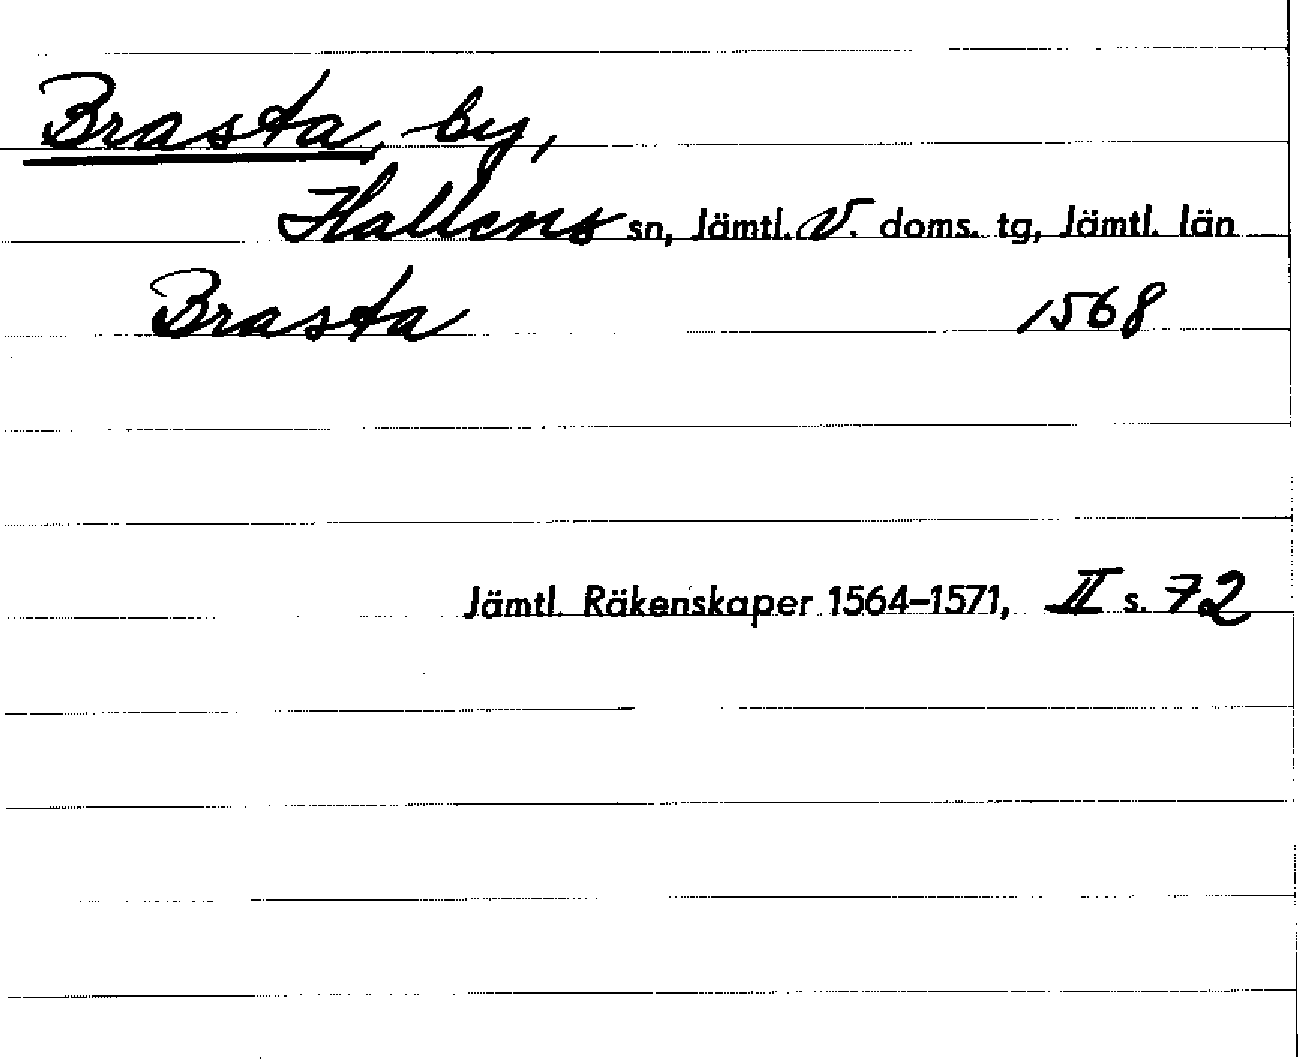 Brasta, by,
Hallens sn, Jämtl. V. doms. tg, Jämtl. län
Brasta 1568
Jämtl. Räkenskaper 1564–1571, II s. 72